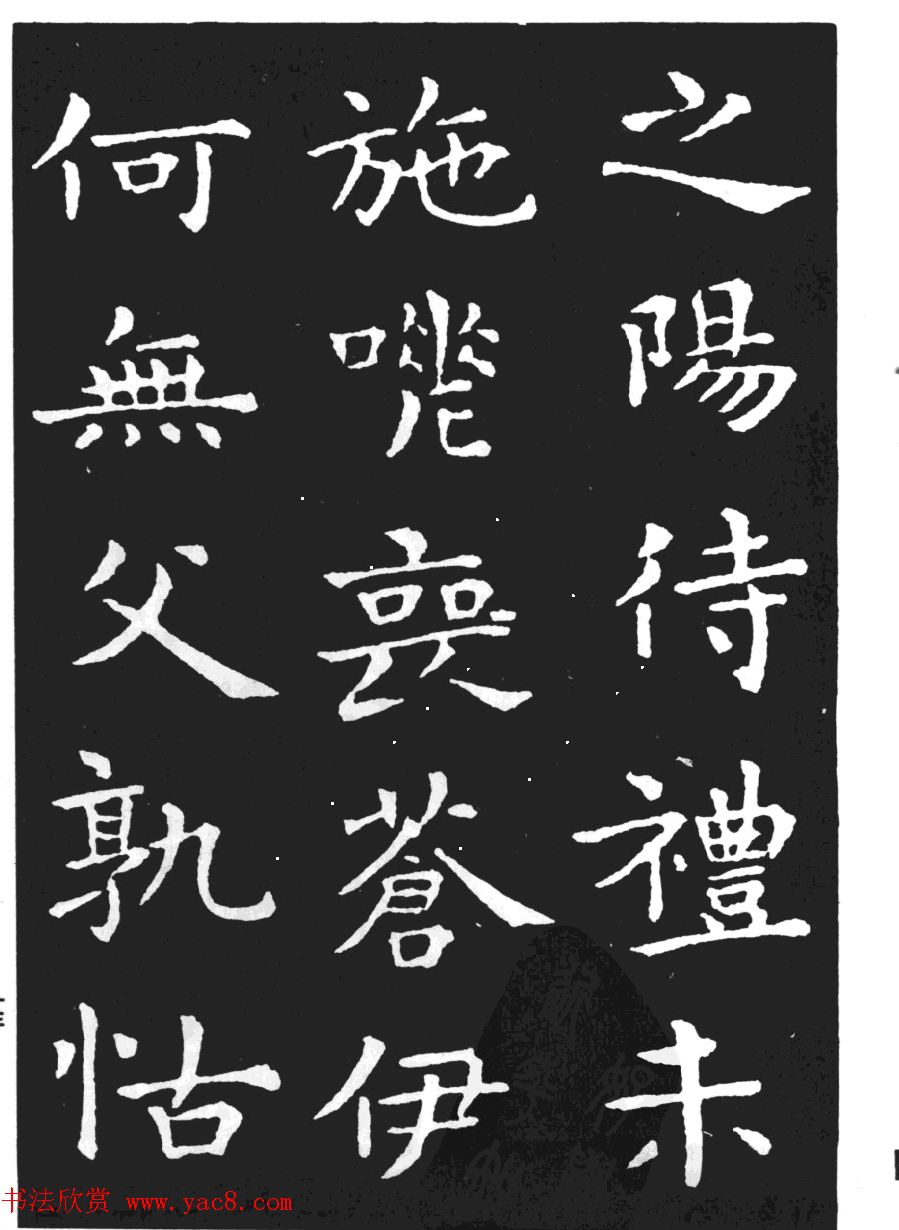 之陽待禮未
施㗭喪蒼伊
何無父孰怙
书法欣赏 www.yac8.com